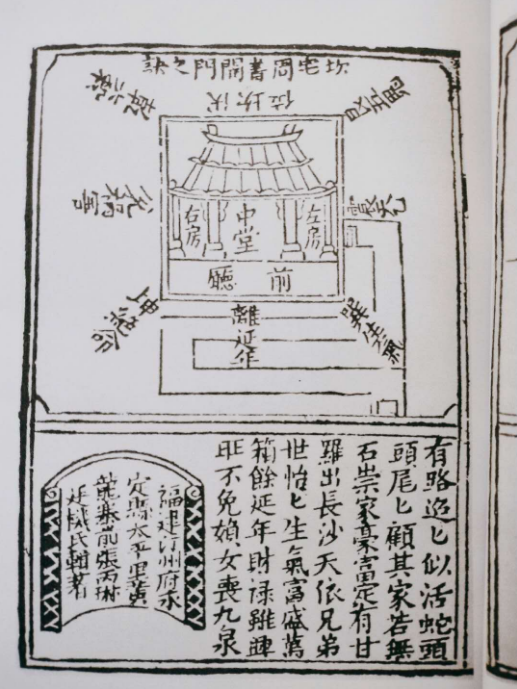 坎宅周書開門之訣
伏坎位
艮五鬼
乾六煞
震天乙
兌禍害
左房
中堂
右房
前廳
巽生氣
離延年
坤絕命
有路迢匕似活蛇頭
頭尾匕顧其家若無
石崇家豪富定有甘
羅出長沙天依兄弟
世怡匕生氣富盛萬
箱餘延年財禄雖
旺不免婦女喪九泉
福建汀州府永
定縣太平里
龍寨前張丙琳
氏輯著